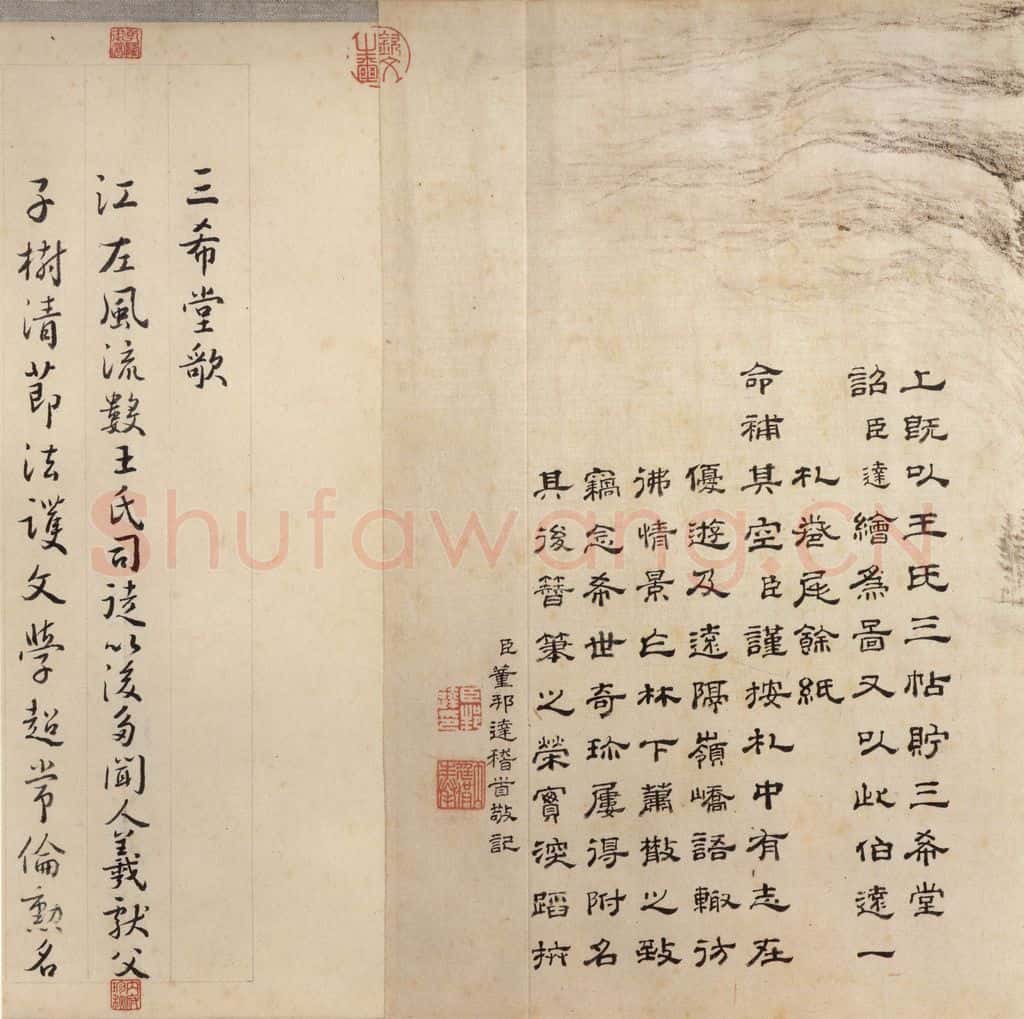 上既以王氏三帖貯三希堂
詔臣達繪為啚又以此伯遠一
札卷尾餘紙
命補其空臣謹按札中有志在
優遊及遠隔嶺嶠語輒彷
彿情景亡林下蕭散之致
竊念希世奇珎屢得附名
其後簪筆之榮實深蹈抃
臣董邦達稽首敬記
三希堂歌
江左風流數王氏司徒以後多聞人羲獻父
子樹清節法護文學超常倫勲名
Shufawang.CN